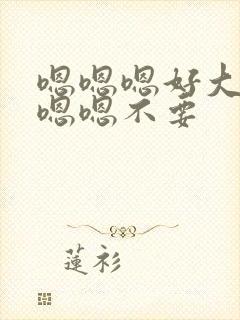 嗯嗯嗯好大
嗯嗯不要
蓮衫